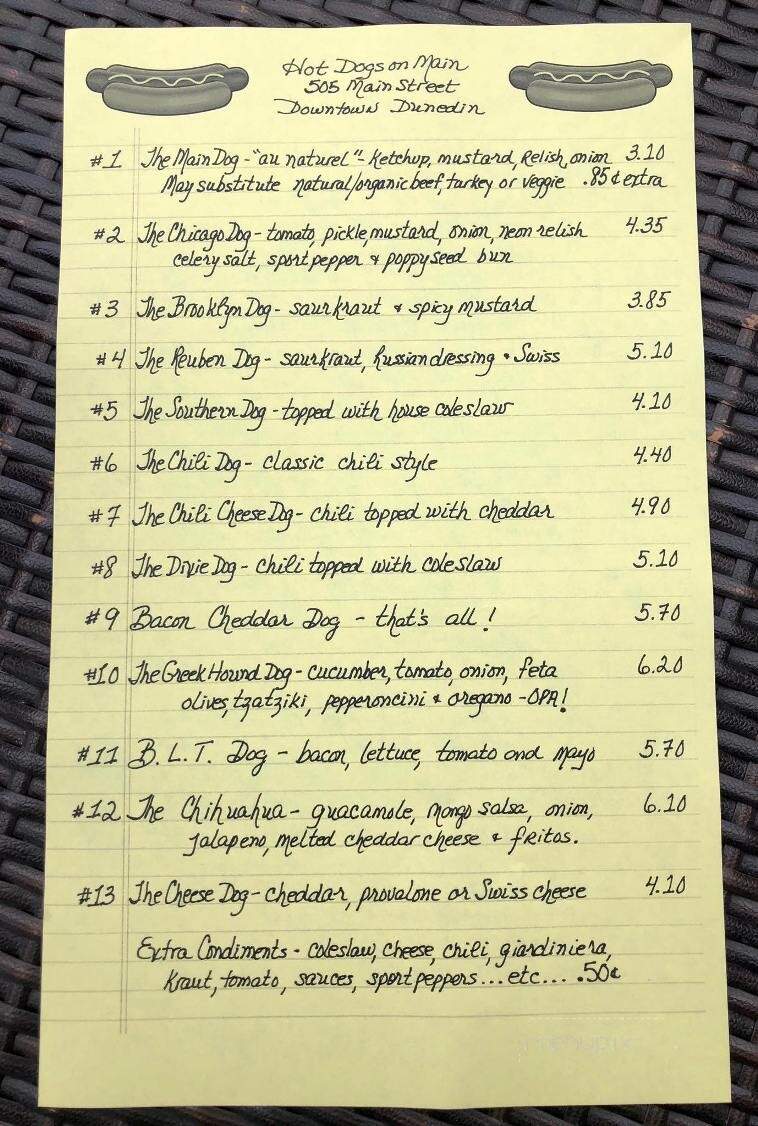 Hot Dogs on Main
505 Main Street
Downtown Dunedin
#1 The Main Dog - "au naturel" - ketchup, mustard, relish, onion 3.10
May substitute natural/organic beef, turkey or veggie .85¢ extra
#2 The Chicago Dog - tomato, pickle, mustard, onion, neon relish 4.35
celery salt, sport pepper & poppyseed bun
#3 The Brooklyn Dog - saurkraut & spicy mustard 3.85
#4 The Reuben Dog - saurkraut, Russian dressing • Swiss 5.10
#5 The Southern Dog - topped with house coleslaw 4.10
#6 The Chili Dog - classic chili style 4.40
#7 The Chili Cheese Dog - chili topped with cheddar 4.90
#8 The Dixie Dog - chili topped with coleslaw 5.10
#9 Bacon Cheddar Dog - that's all! 5.70
#10 The Greek Hound Dog - cucumber, tomato, onion, feta 6.20
olives, tzatziki, pepperoncini & oregano - OPA!
#11 B.L.T. Dog - bacon, lettuce, tomato and mayo 5.70
#12 The Chihuahua - guacamole, mango salsa, onion, 6.10
jalapeno, melted cheddar cheese & fritos.
#13 The Cheese Dog - cheddar, provalone or Swiss cheese 4.10
Extra Condiments - coleslaw, cheese, chili, giardiniera,
kraut, tomato, sauces, sport peppers...etc... .50¢